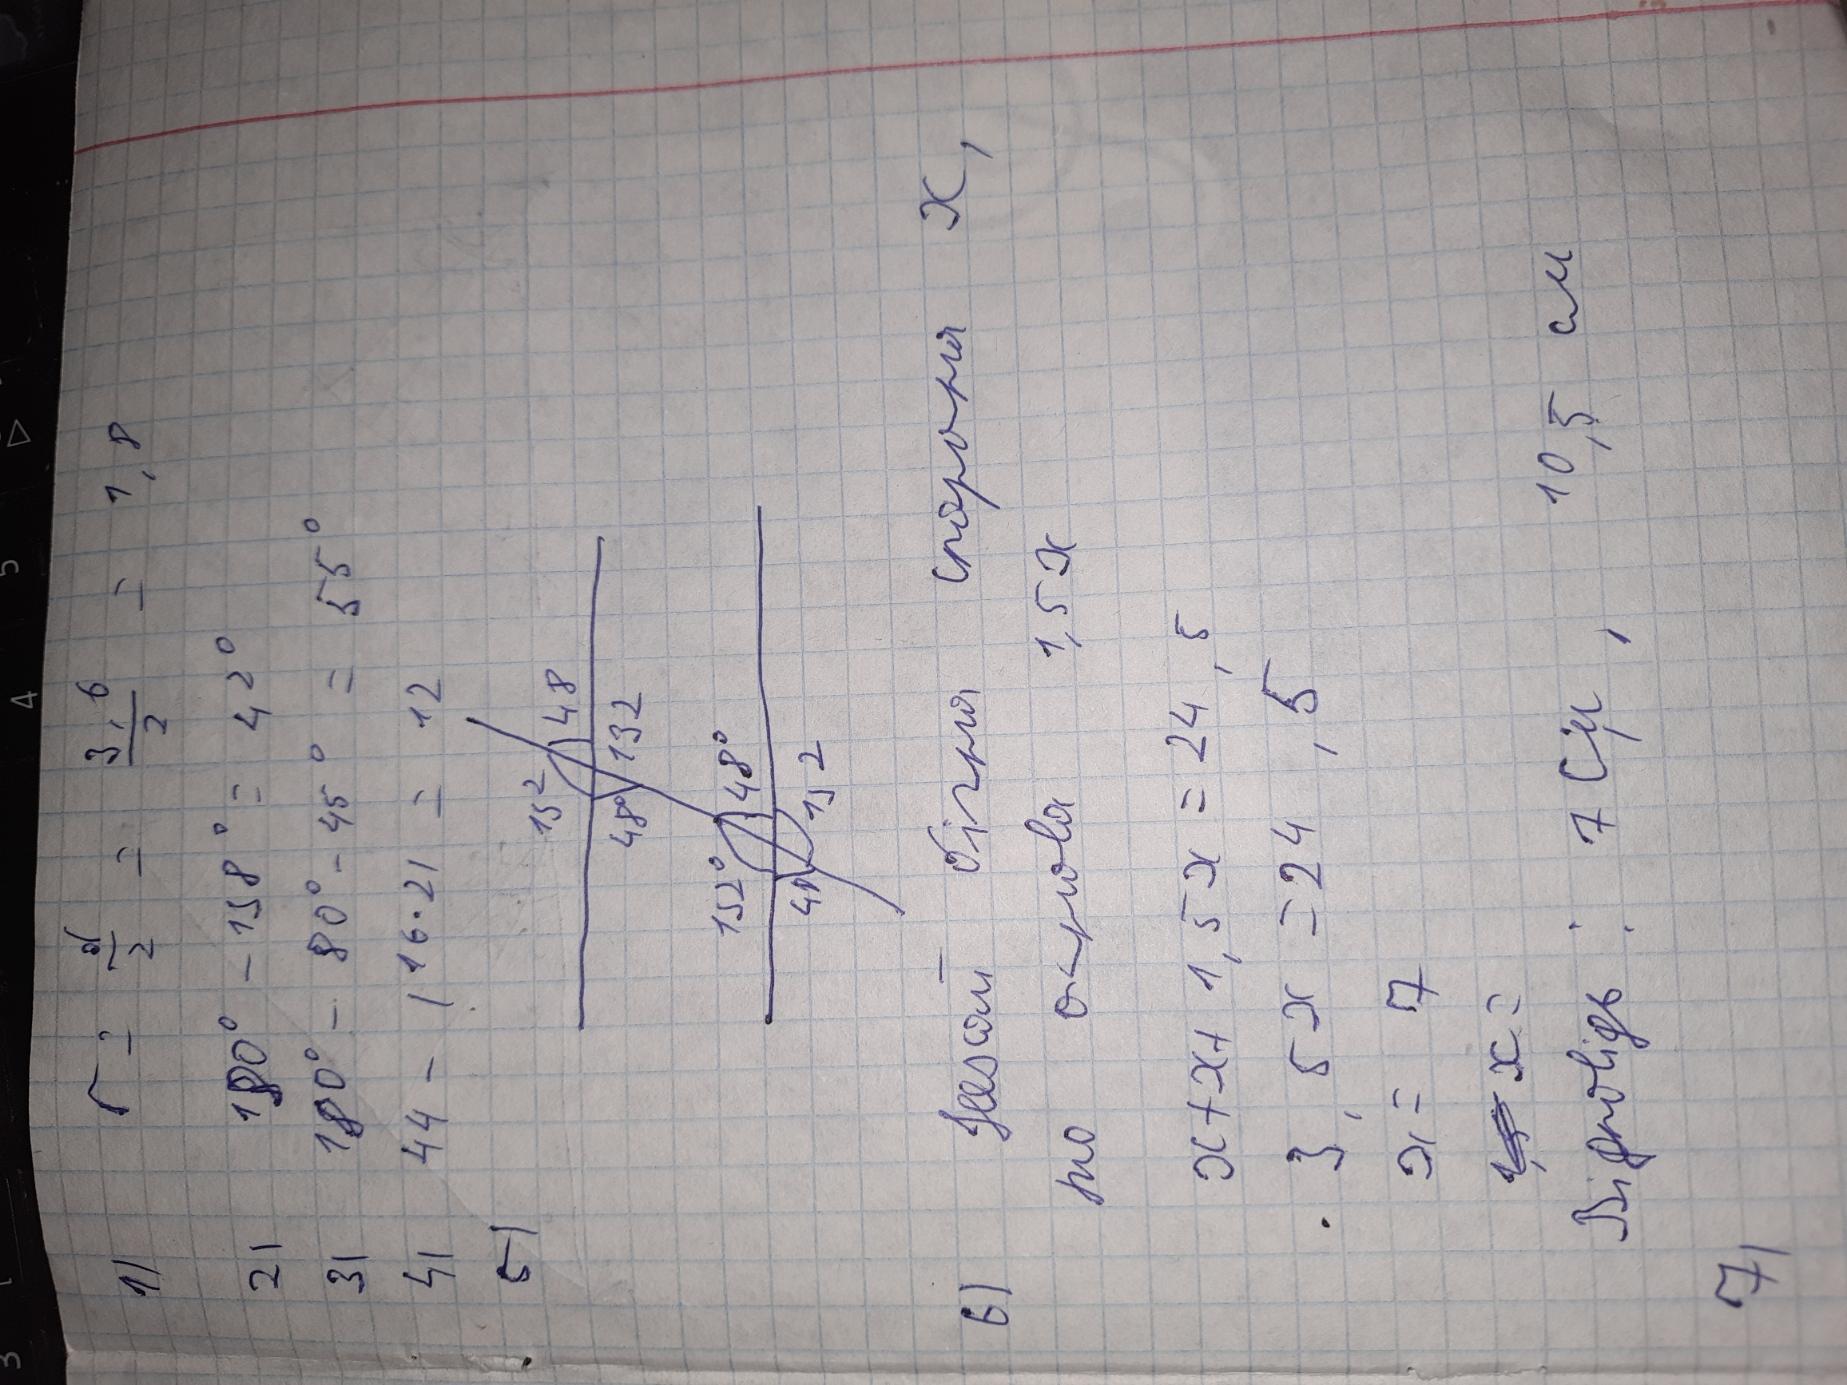 1) r = d/2 = 3,6/2 = 1,8
2) 180° - 138° = 42°
3) 180° - 80° - 45° = 55°
4) 44 - (16·2) = 12
5)
152 48
48° 132
152° 48°
48 152
6) Нехай бічна сторона x,
то основа 1,5x
x+x+1,5x = 24,5
3,5x = 24,5
x = 7
x =
Відповідь: 7 см, 10,5 см
7)
3 4 5